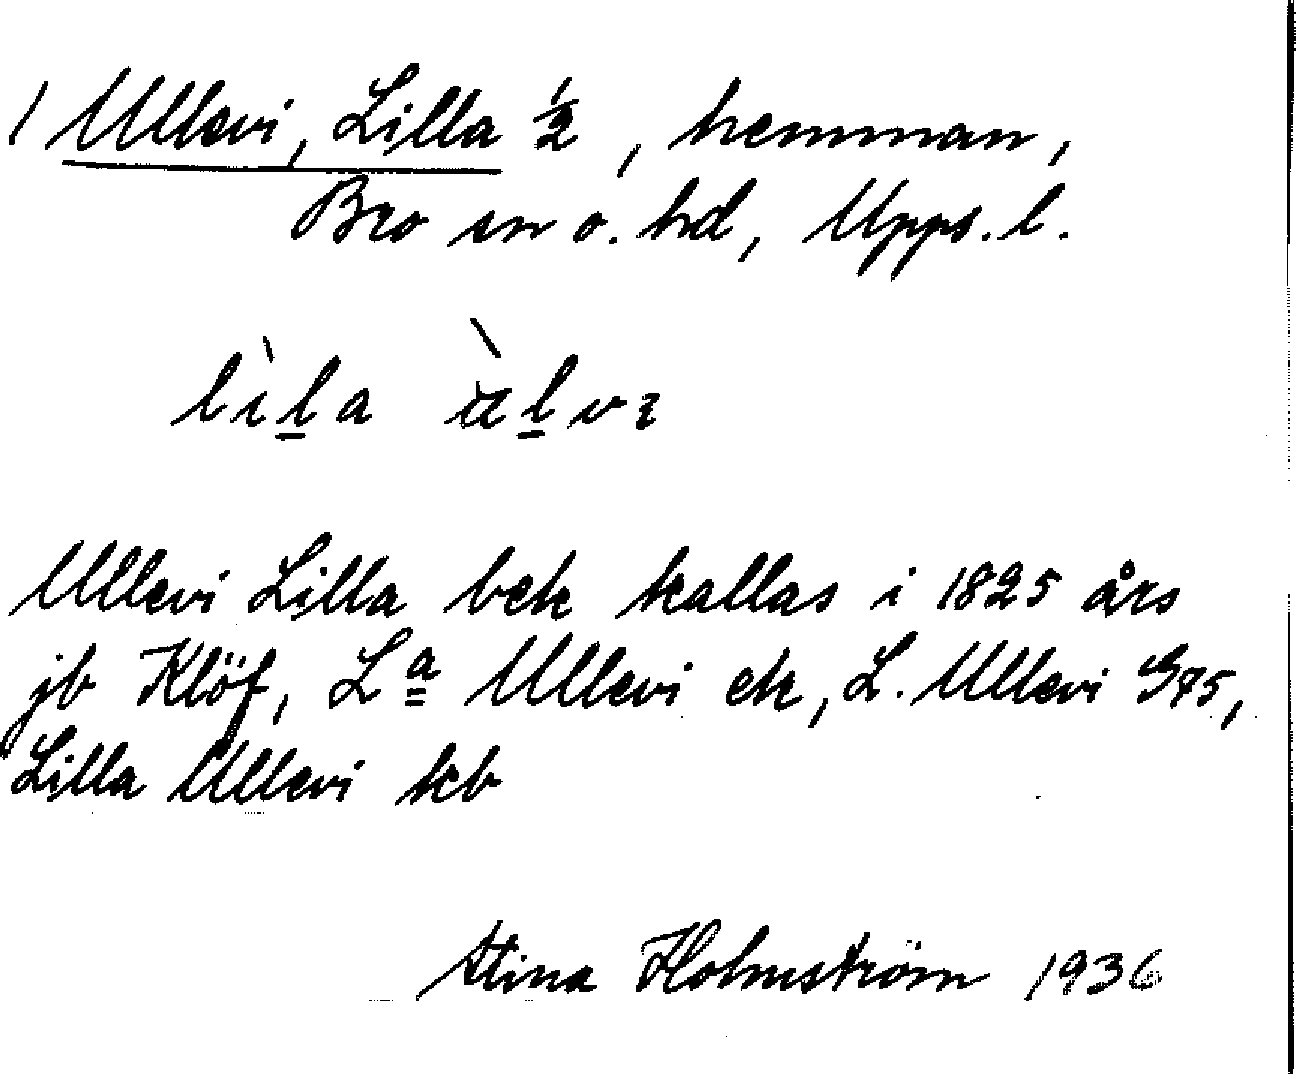 1 Ullevi, Lilla ½, hemman,
Bro sn o. hd, Upps. l.
lìla ùlvɩ
Ullevi Lilla bek kallas i 1825 års
jb Klöf, La Ullevi ek, L. Ullevi G95,
Lilla Ullevi kb
Stina Holmström 1936